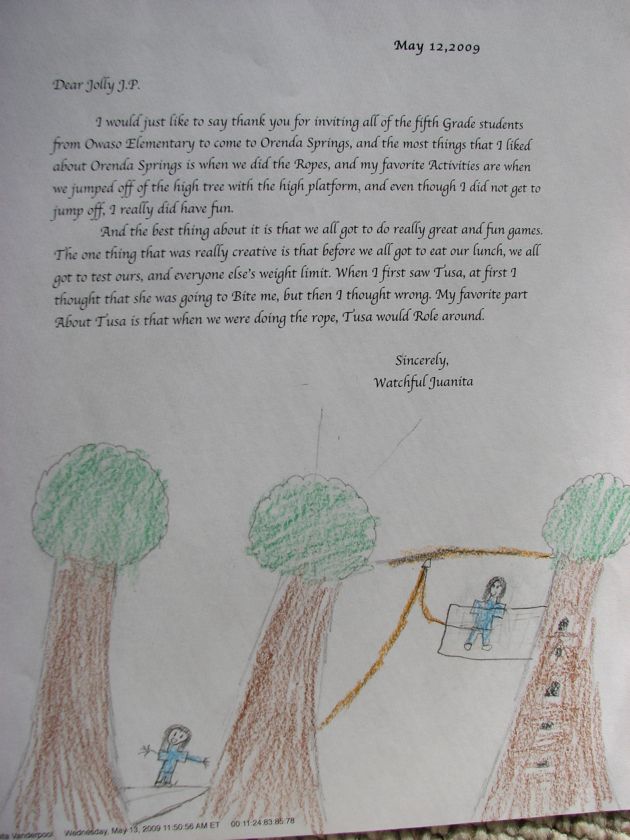 May 12,2009
Dear Jolly J.P.
I would just like to say thank you for inviting all of the fifth Grade students
from Owaso Elementary to come to Orenda Springs, and the most things that I liked
about Orenda Springs is when we did the Ropes, and my favorite Activities are when
we jumped off of the high tree with the high platform, and even though I did not get to
jump off, I really did have fun.
And the best thing about it is that we all got to do really great and fun games.
The one thing that was really creative is that before we all got to eat our lunch, we all
got to test ours, and everyone else's weight limit. When I first saw Tusa, at first I
thought that she was going to Bite me, but then I thought wrong. My favorite part
About Tusa is that when we were doing the rope, Tusa would Role around.
Sincerely,
Watchful Juanita
Vanderpool Wednesday, May 13, 2009 11:50:56 AM ET 00:11:24:83:85:78